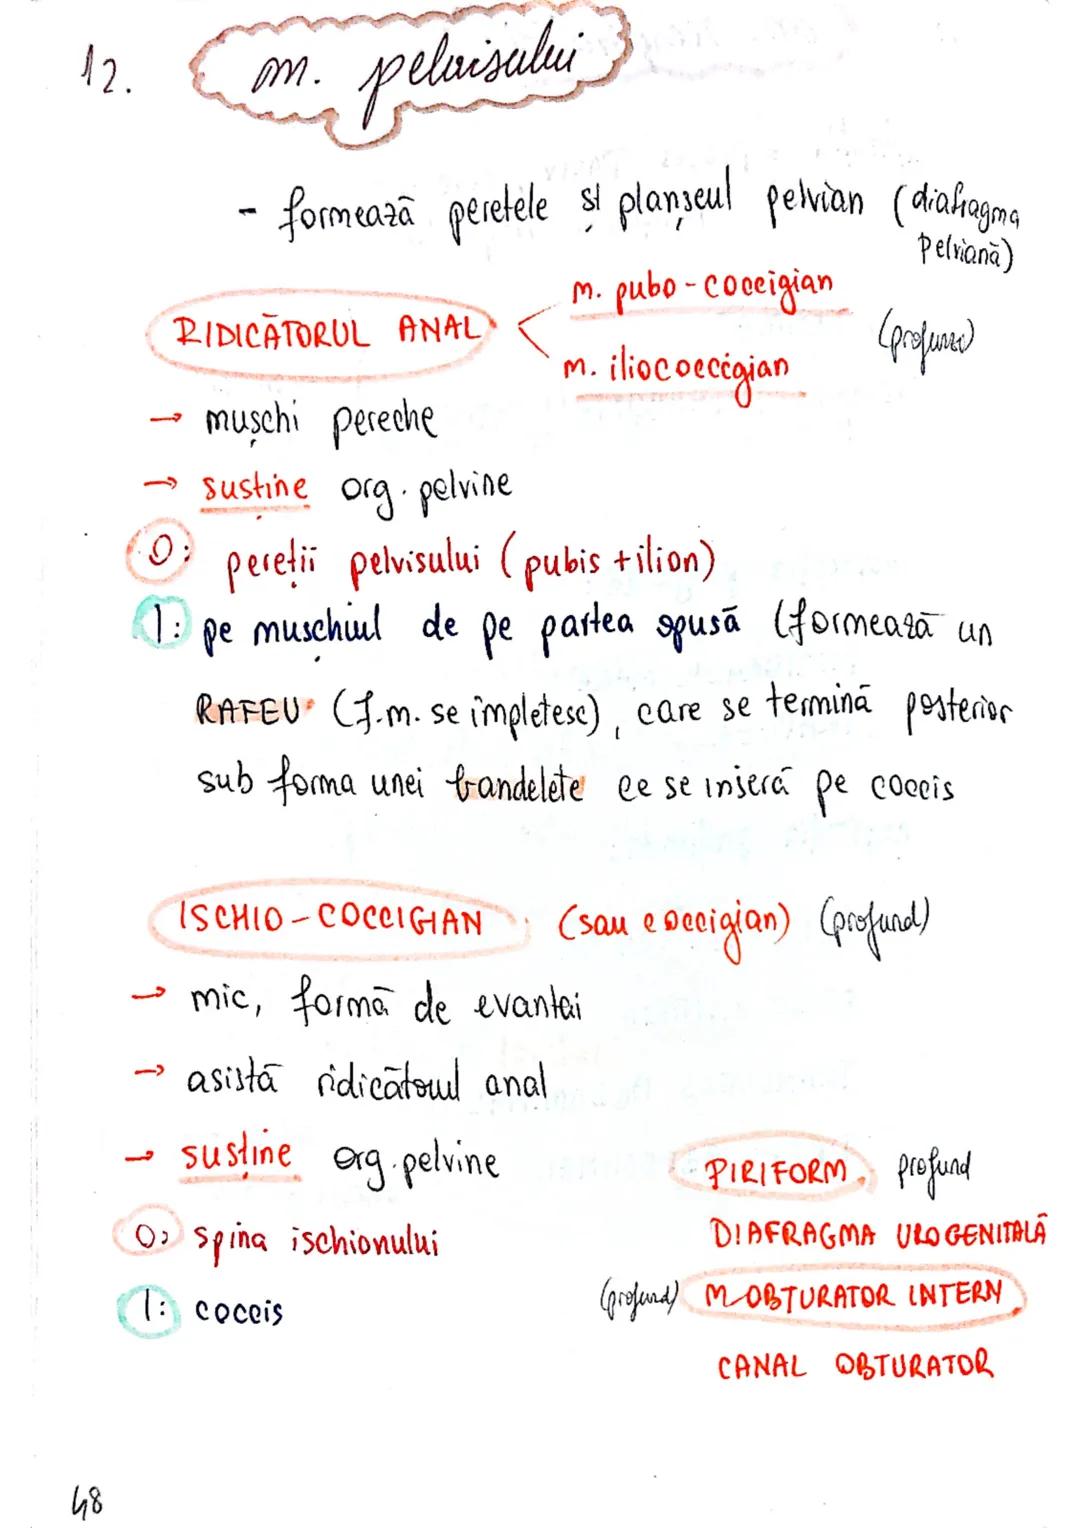 12. m. pelvisului
- formează peretele și planșeul pelvian (diafragma
pelviană)
RIDICĂTORUL ANAL
m. pubo-coccigian
m. iliococcigian
(profunzi)
→ mușchi pereche
→ susține org. pelvine
O: pereții pelvisului (pubis + ilion)
I: pe mușchiul de pe partea opusă (formează un
RAFEU (f.m. se împletesc), care se termină posterior
sub forma unei bandelete ce se inseră pe coccis
ISCHIO-COCCIGIAN (sau coccigian) (profund)
→ mic, formă de evantai
→ asistă ridicătorul anal
→ susține org. pelvine
O: spina ischionului
I: coccis
PIRIFORM profund
DIAFRAGMA UROGENITALĂ
(profund) M OBTURATOR INTERN
CANAL OBTURATOR
48